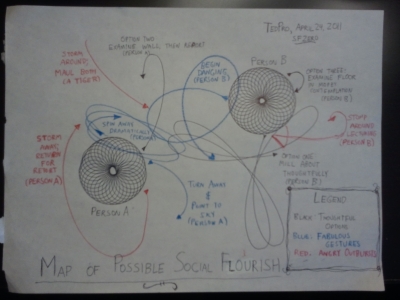 TedPro, April 29, 2011
SFZERO
OPTION TWO
EXAMINE WALL THEN REPORT
(PERSON A)
STORM
AROUND,
MAUL BODY
(A TIGER)
BEGIN
DANCING,
(PERSON B)
PERSON B
OPTION THREE:
EXAMINE FLOOR
IN
CONTEMPLATION
(PERSON B)
SPIN AWAY
DRAMATICALLY
STOMP
AROUND
LECTURING
(PERSON B)
STORM
AWAY,
RETURN FOR
RETORT
(PERSON A)
OPTION ONE
MULL ABOUT
THOUGHTFULLY
(PERSON B)
TURN AWAY
&
POINT TO
SKY
(PERSON A)
PERSON A
LEGEND
BLACK: THOUGHTFUL
OPTIONS
BLUE: FABULOUS
GESTURES
RED: ANGRY OUTBURSTS
MAP OF POSSIBLE SOCIAL FLOURISH